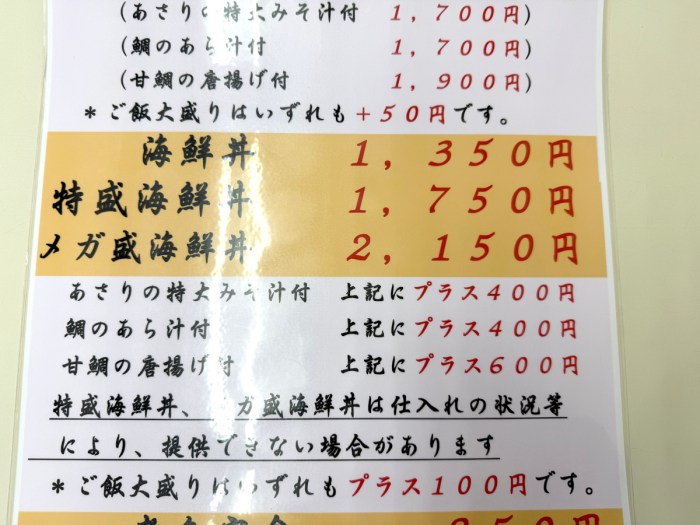 (あさりの特大みそ汁付 1,700円)
(鯛のあら汁付 1,700円)
(甘鯛の唐揚げ付 1,900円)
*ご飯大盛りはいずれも+50円です。
海鮮丼 1,350円
特盛海鮮丼 1,750円
メガ盛海鮮丼 2,150円
あさりの特大みそ汁付 上記にプラス400円
鯛のあら汁付 上記にプラス400円
甘鯛の唐揚げ付 上記にプラス600円
特盛海鮮丼、メガ盛海鮮丼は仕入れの状況等
により、提供できない場合があります
*ご飯大盛りはいずれもプラス100円です。